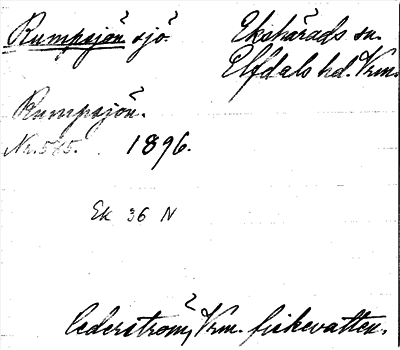 Rumpsjön sjö. Ekshärads sn.
Elfdals hd. Vrm.
Rumpsjön.
Nr. 585. 1896.
Ek 36 N
Cederström, Vrm. fiskevatten.